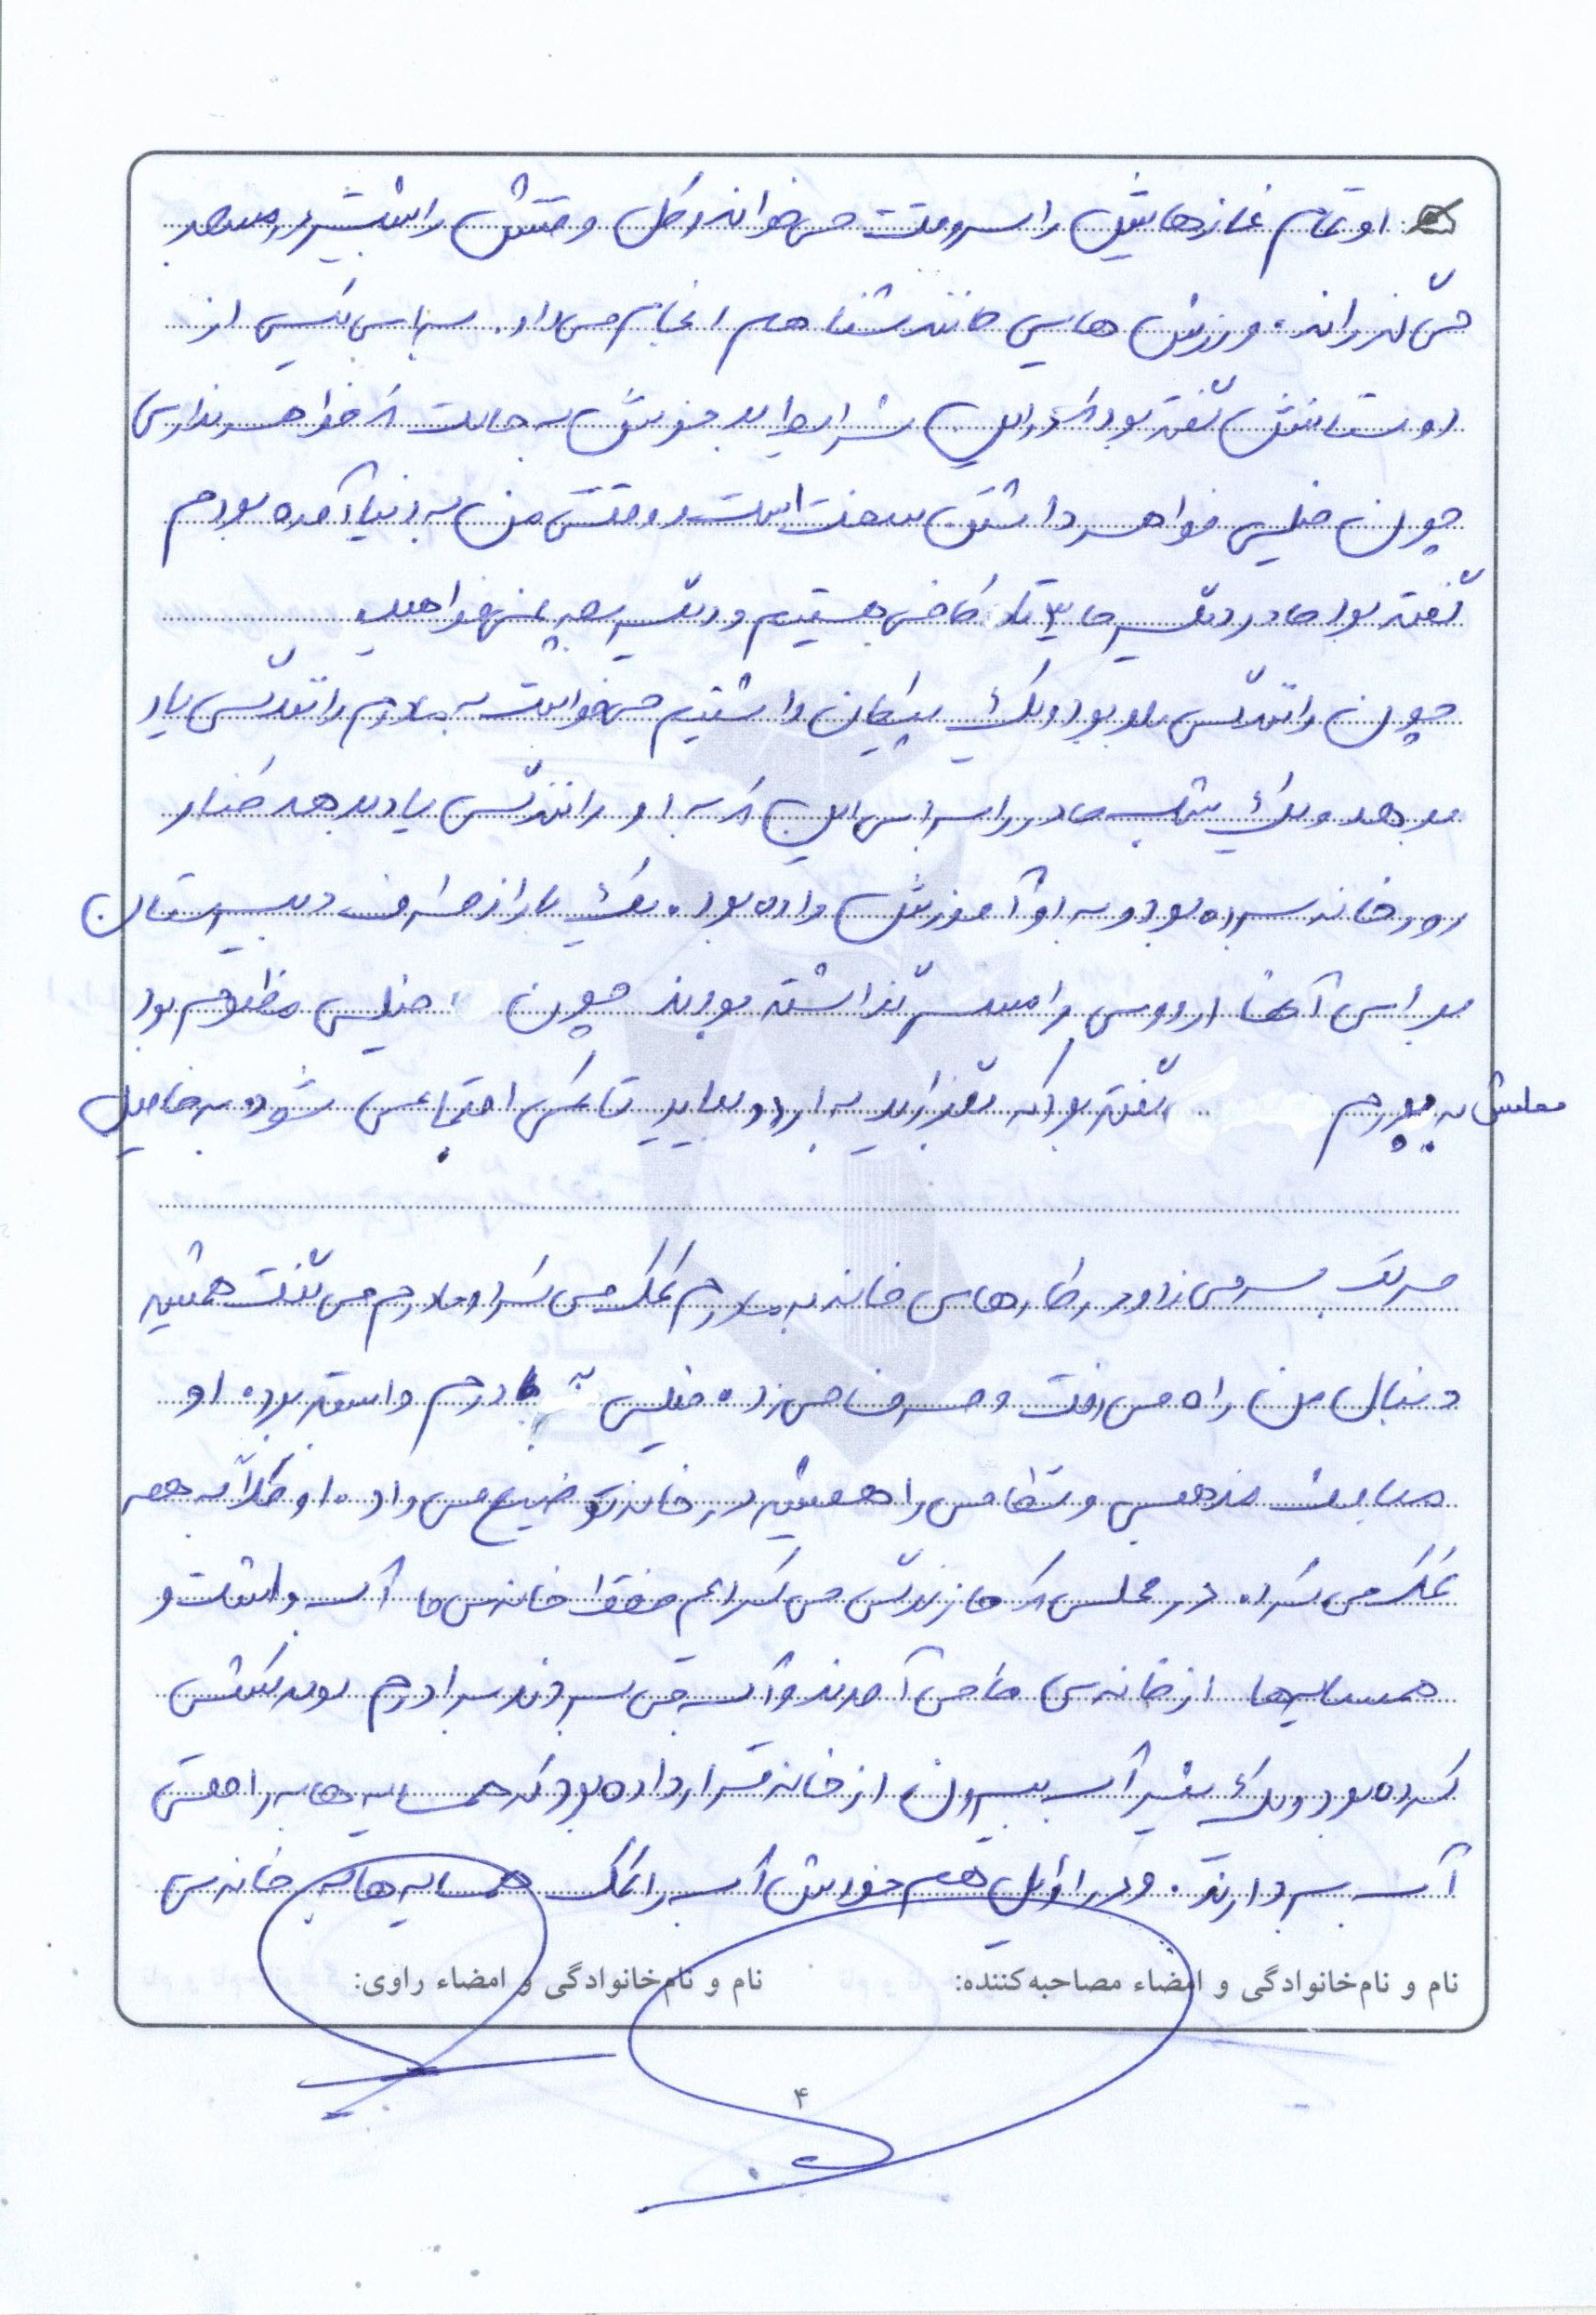 او تمام نمازهایش را سر وقت می خواند و کل وقتش را بیشتر در مسجد
می گذراند. ورزش هایی مانند شنا هم انجام می داد. برای یکی از
دوستانش گفته بود که در این شرایط بد خوش به حالت که خواهر نداری
چون خیلی خواهر داشتن سخت است و وقتی من به دنیا آمده بودم
گفته بود مادر دیگر ما ۳ تا کافی هستیم و دیگر بچه نمی خواهیم
چون رانندگی بلد بود و یک پیکان داشتیم می خواست به مادرم رانندگی یاد
بدهد و یک شب مادر را برای این که به او رانندگی یاد بدهد کنار
رودخانه برده بود و به او آموزش داده بود. یک بار از طرف دبیرستان
برای آنها اردوی رامسر گذاشته بودند چون خیلی مظلوم بود
معلمش به پدرم گفته بود که بگذارید به اردو بیاید تا کمی اجتماعی شود. به فامیل
مرتب سر می زد و در کارهای خانه به مادرم کمک می کرد و مادرم می گفت همیشه
دنبال من راه می رفت و حرف می زد. خیلی به مادرم وابسته بود. او
مباحث مذهبی و نظامی را همیشه در خانه توضیح می داد. او کلاً به همه
کمک می کرد. در محلی که ما زندگی می کردیم فقط خانه ی ما آب داشت و
همسایه ها از خانه ی ما می آمدند و آب می بردند برادرم لوله کشی
کرده بود و یک شیر آب بیرون از خانه قرار داده بود که همسایه ها به راحتی
آب بردارند. و در اوایل هم خودش آب را کمک همسایه ها به خانه ی
نام و نام‌خانوادگی و امضاء مصاحبه‌کننده: نام و نام‌خانوادگی و امضاء راوی:
۴